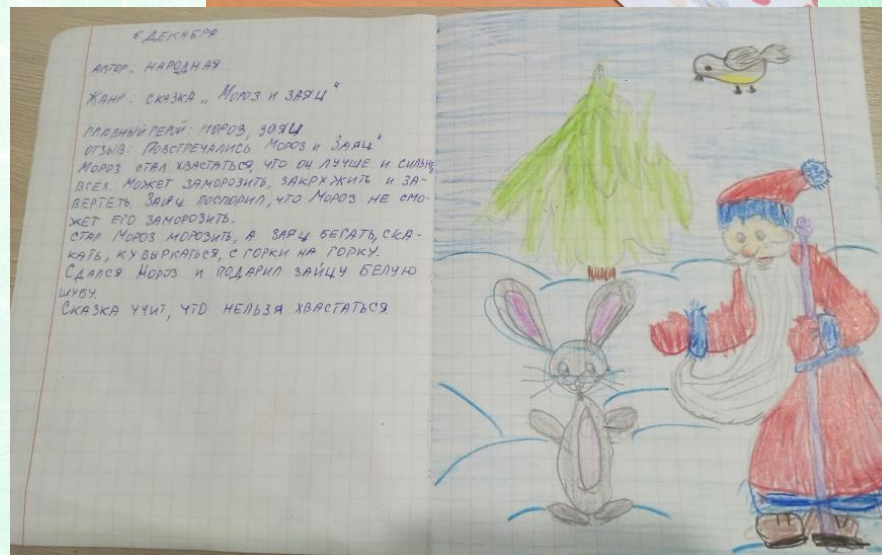 6 ДЕКАБРЯ
АВТОР: НАРОДНАЯ
ЖАНР: СКАЗКА „МОРОЗ И ЗАЯЦ"
ГЛАВНЫЙ ГЕРОЙ: МОРОЗ, ЗАЯЦ
ОТЗЫВ: ПОВСТРЕЧАЛИСЬ МОРОЗ И ЗАЯЦ"
МОРОЗ СТАЛ ХВАСТАТЬСЯ, ЧТО ОН ЛУЧШЕ И СИЛЬНЕ
ВСЕХ. МОЖЕТ ЗАМОРОЗИТЬ, ЗАКРУЖИТЬ И ЗА-
ВЕРТЕТЬ. ЗАЯЦ ПОСПОРИЛ, ЧТО МОРОЗ НЕ СМО-
ЖЕТ ЕГО ЗАМОРОЗИТЬ.
СТАЛ МОРОЗ МОРОЗИТЬ, А ЗАЯЦ БЕГАТЬ, СКА-
КАТЬ, КУВЫРКАТЬСЯ, С ГОРКИ НА ГОРКУ.
СДАЛСЯ МОРОЗ И ПОДАРИЛ ЗАЙЦУ БЕЛУЮ
ШУБУ.
СКАЗКА УЧИТ, ЧТО НЕЛЬЗЯ ХВАСТАТЬСЯ